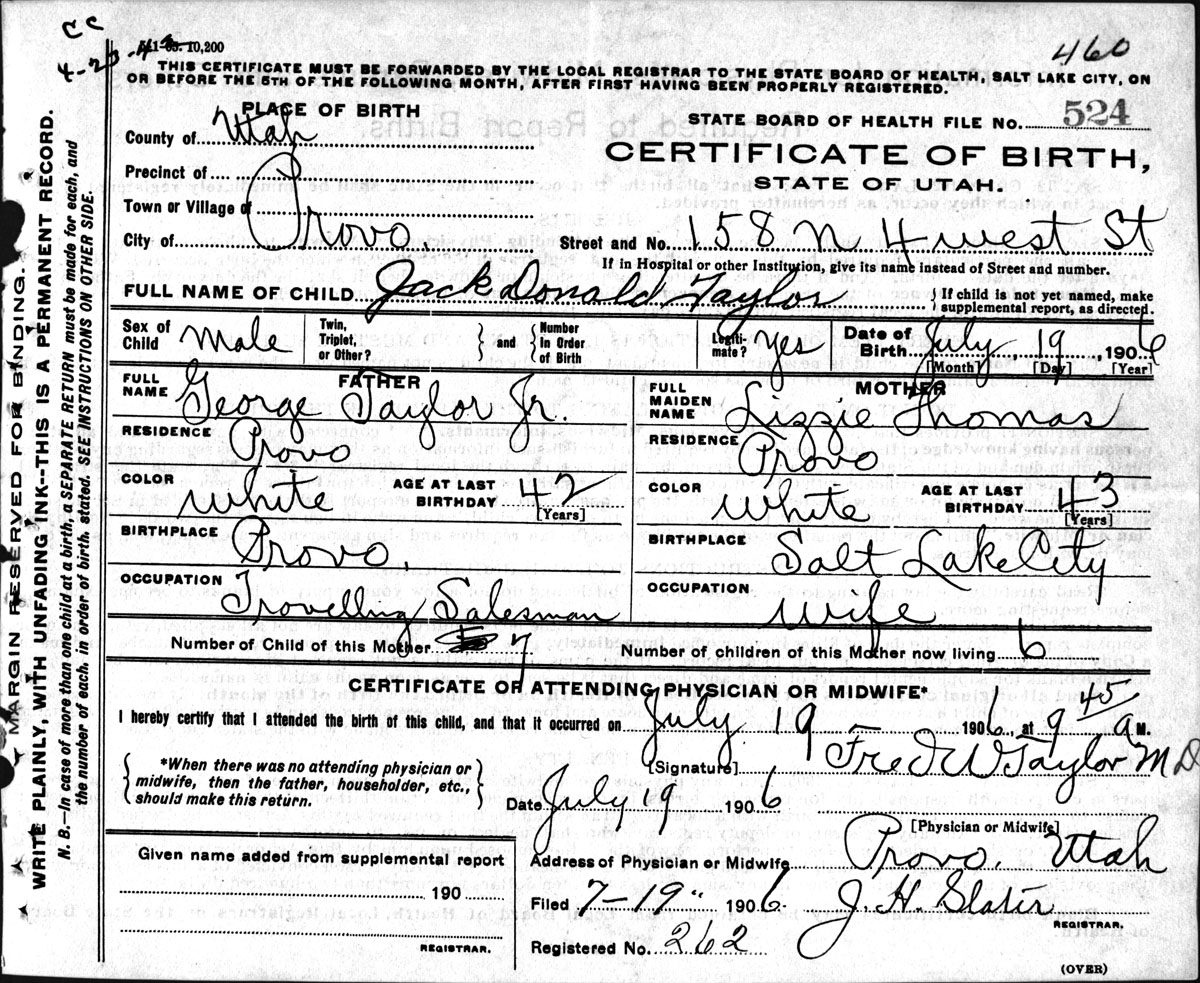 CC
4-23-43
511-05. 10,200
460
THIS CERTIFICATE MUST BE FORWARDED BY THE LOCAL REGISTRAR TO THE STATE BOARD OF HEALTH, SALT LAKE CITY, ON
OR BEFORE THE 5TH OF THE FOLLOWING MONTH, AFTER FIRST HAVING BEEN PROPERLY REGISTERED.
PLACE OF BIRTH
STATE BOARD OF HEALTH FILE No. 524
County of Utah
CERTIFICATE OF BIRTH,
STATE OF UTAH.
Precinct of
Town or Village of
City of Provo
Street and No. 158 N 4 west St
If in Hospital or other Institution, give its name instead of Street and number.
FULL NAME OF CHILD Jack Donald Taylor
If child is not yet named, make supplemental report, as directed.
Sex of Child Male
Twin, Triplet, or Other?
and
Number in Order of Birth
Legiti-mate? yes
Date of Birth July 19, 1906
[Month] [Day] [Year]
FATHER
FULL NAME George Taylor Jr.
RESIDENCE Provo
COLOR White
AGE AT LAST BIRTHDAY 42
[Years]
BIRTHPLACE Provo.
OCCUPATION Travelling Salesman
MOTHER
FULL MAIDEN NAME Lizzie Thomas
RESIDENCE Provo
COLOR White
AGE AT LAST BIRTHDAY 43
[Years]
BIRTHPLACE Salt Lake City
OCCUPATION Wife
Number of Child of this Mother 7
Number of children of this Mother now living 6
CERTIFICATE OF ATTENDING PHYSICIAN OR MIDWIFE*
I hereby certify that I attended the birth of this child, and that it occurred on July 19 1906, at 9 45 a M.
*When there was no attending physician or
midwife, then the father, householder, etc.,
should make this return.
[Signature] Fred W Taylor M D
Date July 19 1906
[Physician or Midwife]
Given name added from supplemental report
190
REGISTRAR.
Address of Physician or Midwife Provo. Utah
Filed 7-19- 1906
J. H. Slater
REGISTRAR.
Registered No. 262
(OVER)
MARGIN RESERVED FOR BINDING.
WRITE PLAINLY, WITH UNFADING INK--THIS IS A PERMANENT RECORD.
N. B.--In case of more than one child at a birth, a SEPARATE RETURN must be made for each, and
the number of each, in order of birth, stated. SEE INSTRUCTIONS ON OTHER SIDE.